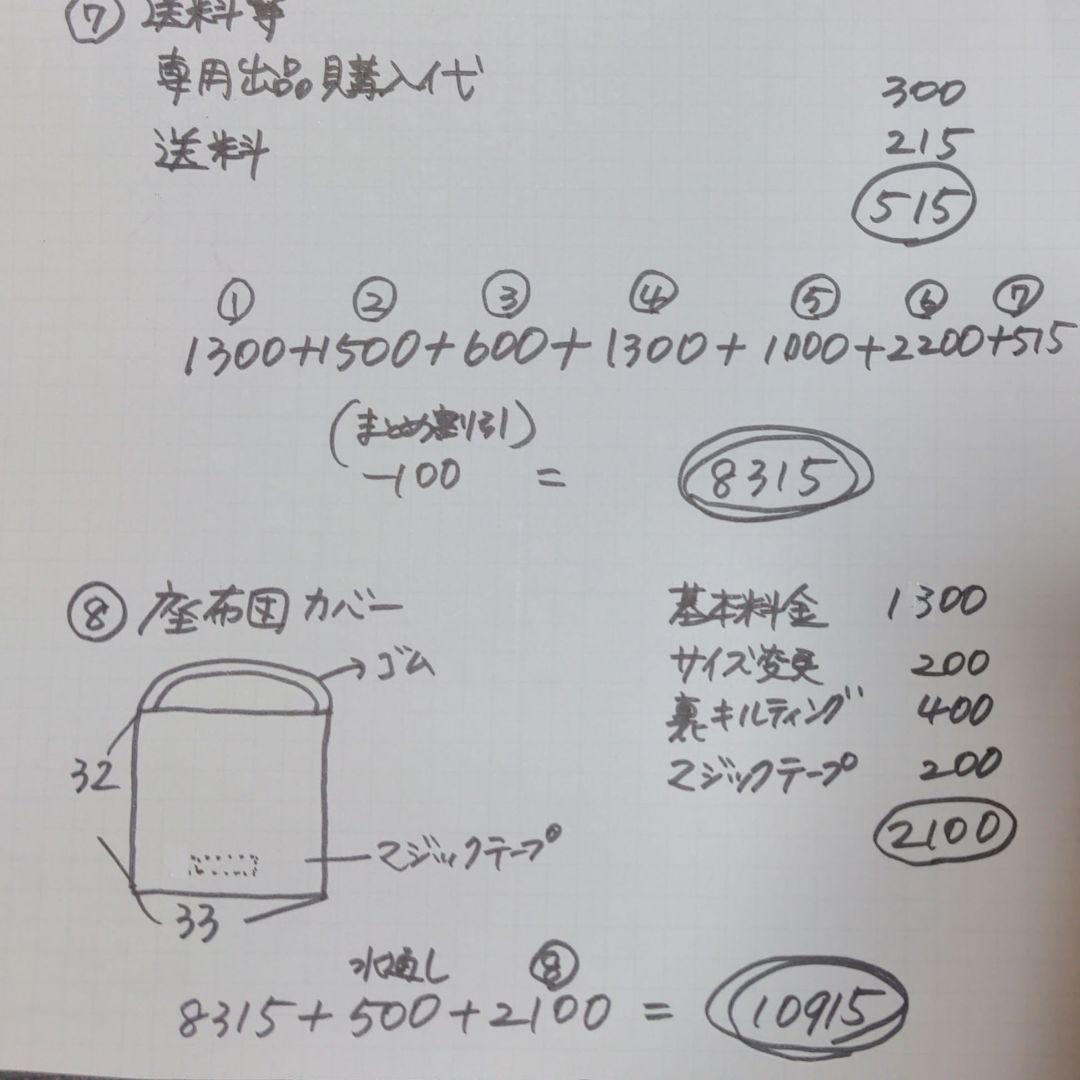 ⑦ 送料等
専用出品購入代 300
送料 215
515
① ② ③ ④ ⑤ ⑥ ⑦
1300+1500+600+1300+1000+2200+515
(まとめ割引)
-100 = 8315
⑧ 座布団カバー
基本料金 1300
サイズ変更 200
裏キルティング 400
マジックテープ 200
2100
ゴム
32
マジックテープ
33
水通し ⑧
8315+500+2100 = 10915